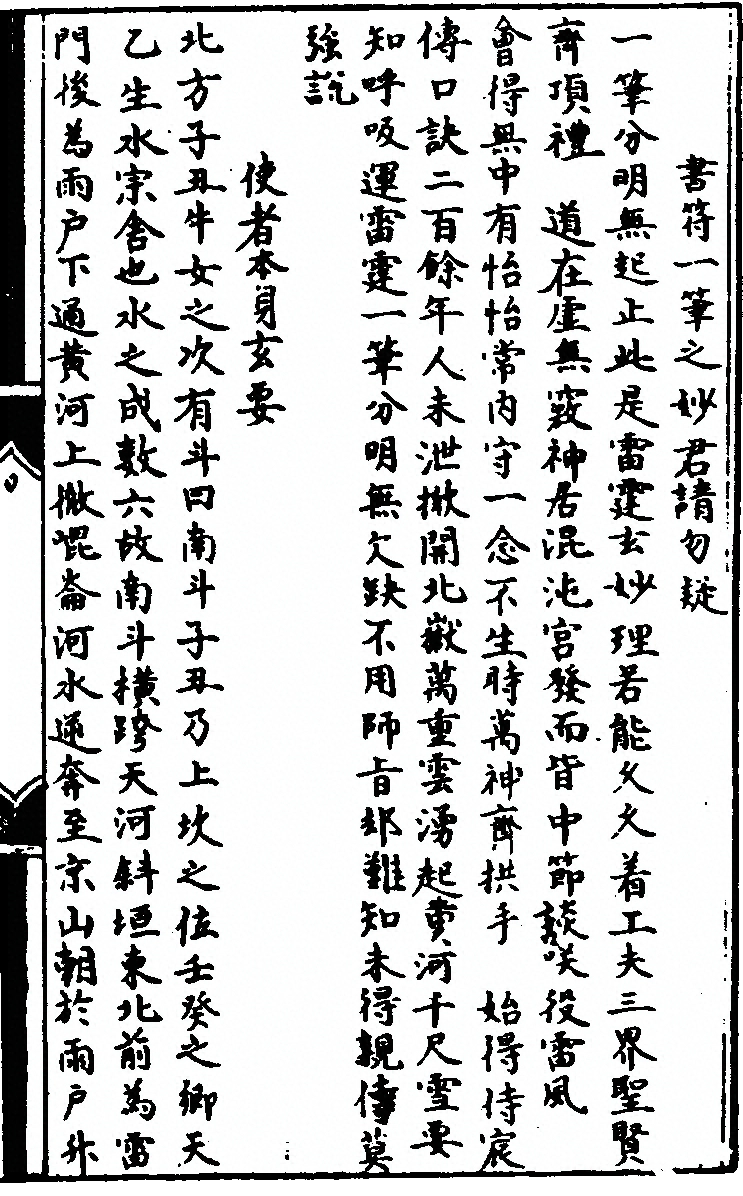 書符一筆之妙君請勿疑
一筆分明無起止此是雷霆玄妙理若能久久着工夫三界聖賢
齊頂禮 道在虛無竅神居混沌宮發而皆中節談咲役雷風
會得無中有怡怡常內守一念不生時萬神齊拱手 始得侍宸
傳口訣二百餘年人未泄掀開北嶽萬重雲湧起黃河千尺雪要
知呼吸運雷霆一筆分明無欠缺不用師旨却難知未得親傳莫
強說
使者本身玄要
北方子丑牛女之次有斗曰南斗子丑乃上坎之位壬癸之鄉天
乙生水宗舍也水之成數六故南斗橫跨天河斜垣東北前為雷
門後為雨户下通黃河上撤崐崙河水逆奔至京山朝於雨户升